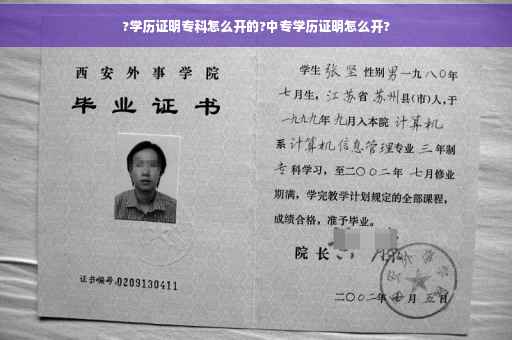 ?学历证明专科怎么开的?中专学历证明怎么开?
西安外事学院
毕业证书
证书编号:0209130411
学生 张坚 性别 男 一九八〇年
七月生，江苏省 苏州县(市)人,于
一九九九年 九月入本院 计算机
系 计算机信息管理专业 三 年制
专科学习，至二〇〇二年 七月修业
期满，学完教学计划规定的全部课程，
成绩合格，准予毕业。
院长
二〇〇二年 月 五日